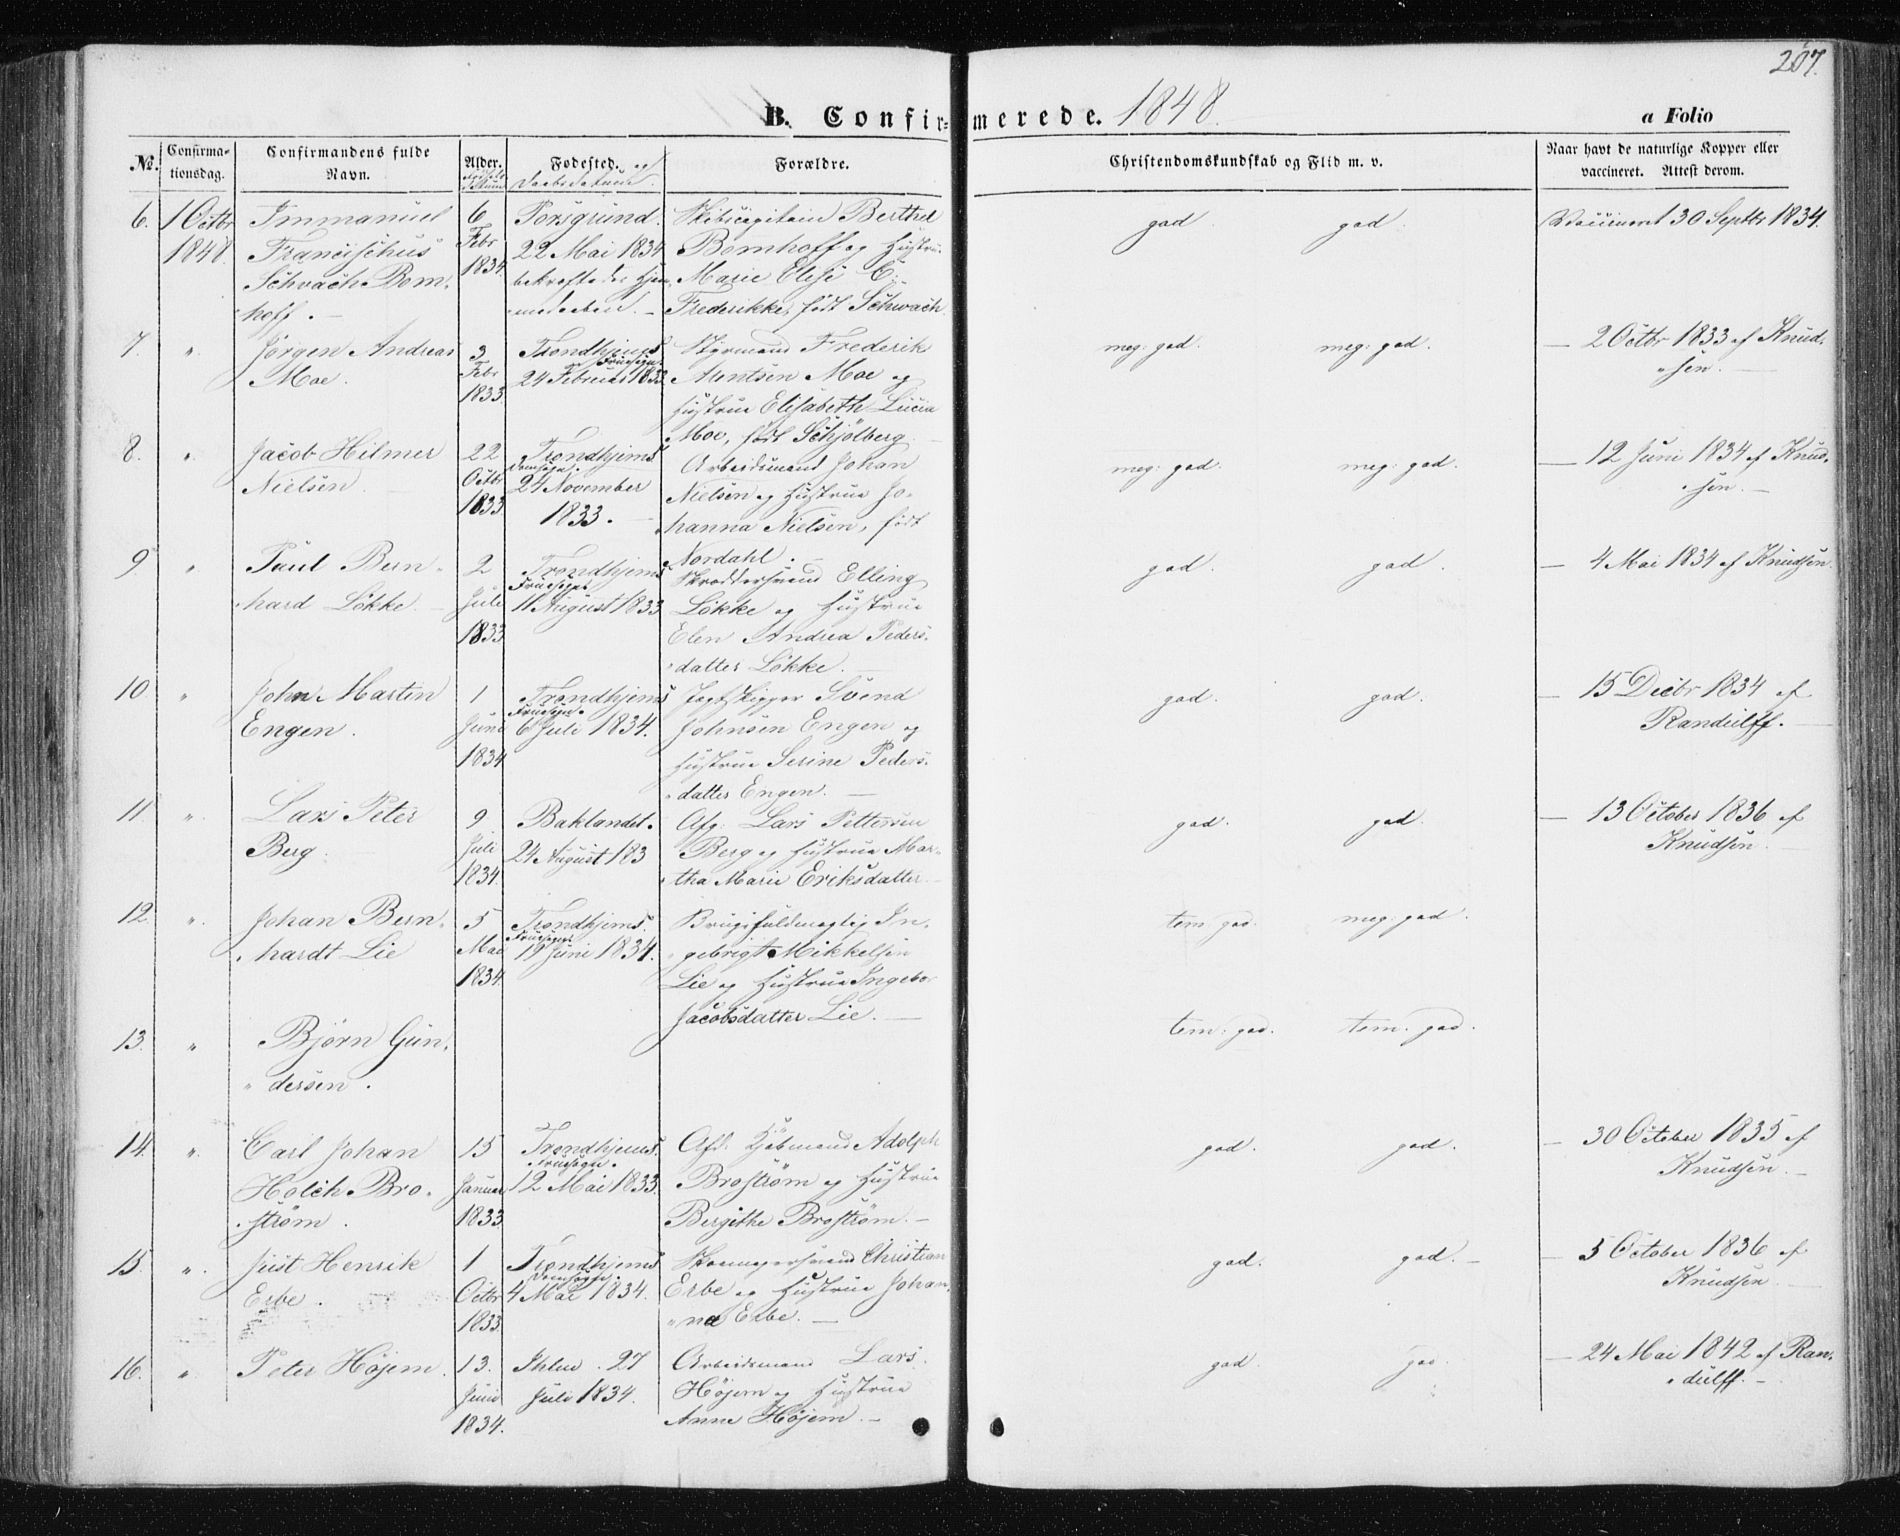 207.
B. Confir= merede. 1848.
a Folio
No.
Confirma-
tionsdag.
Confirmandens fulde
Navn.
Alder.
Fødested. og
Daabsdatum.
Forældre.
Christendomskundskab og Flid m. v.
Naar havt de naturlige Kopper eller
vaccineret. Attest derom.
6. 1 Octbr Immanuel 6 Porsgrund. Skibscapitain Berthel god. god. Vaccineret 30 Septbr 1834.
1848. Francischus Febr 22 Mai 1834 Bomhoff og Hustrue
Schvach Bom- 1834. Marie Elise C:
hoff. — Frederikke, født Schwach.
7. " Jørgen Andreas 3 Trondhjems Styrmand Frederik meg: god. meg: god. — 2 Octbr 1833 af Knud-
Moe. Febr Fruesogn 24 Februar 1833. Arntsen Moe og "sen. —
1833. Hustrue Elisabeth Lucia
Moe, født Schjølberg.
8. " Jacob Hilmer 22 Trondhjems Arbeidsmand Johan meg: god. meg: god. — 12 Juni 1834 af Knud-
Nielsen. — Octbr Domsogn. 24 November Nielsen og Hustrue Jo- "sen. —
1833 1833. — "hanna Nielsen, født
Nordahl.
9. " Paul Bern- 2 Trondhjems Skræddersvend Elling god. god. — 4 Mai 1834 af Knudsen.
"hard Løkke. — Juli Fruesogn 11 August 1833 Løkke og Hustrue
1833 Elen Andrea Peders-
"datter Løkke. —
10 " John Martin 1 Trondhjems Jagtskipper Svend god. god. — 15 Decbr 1834 af
Engen. Juni Fruesogn. 6 Juli 1834. Johnsen Engen og Randulff. —
1834 Hustrue Serine Peders-
"datter Engen. —
11. " Lars Peter 9 Baklandet. Afg. Lars Pettersen god. god. — 13 October 1836 af
Berg. Juli 24 August 183 Berg og Hustrue Mar- Knudsen. —
1834. "tha Marie Eriksdatter. —
12. " Johan Bern- 5 Trondhjems. Brugsfuldmægtig In- tem: god. meg: god.
"hardt Lie Mai Fruesogn 19 Juni 1834. "gebrigt Mikkelsen
1834. Lie og Hustrue Ingebor
Jacobsdatter Lie. —
13. " Bjørn Gun- tem: god. tem: god.
"dersen.
14. " Carl Johan 15 Trondhjems. Afd. Kjøbmand Adolph god. god. — 30 October 1835 af
Holck Bro- Januar Fruesogn. 12 Mai 1833. Broström og Hustrue Knudsen. —
"strøm. 1833 Bergithe Broström. —
15. " Just Henrik 1 Trondhjems Skomagersvend Christian god. god. — — 5 October 1836 af
Erbe. Octbr Domsogn. 4 Mai 1834. Erbe og Hustrue Johan- Knudsen. —
1833. "na Erbe. —
16. " Peter Højem. 13. Ihlen. 27 Arbeidsmand Lars god. god. — 24 Mai 1842 af Ran-
Juni Juli 1834. Højem og Hustrue "dulff. —
1834. Anne Højem. —